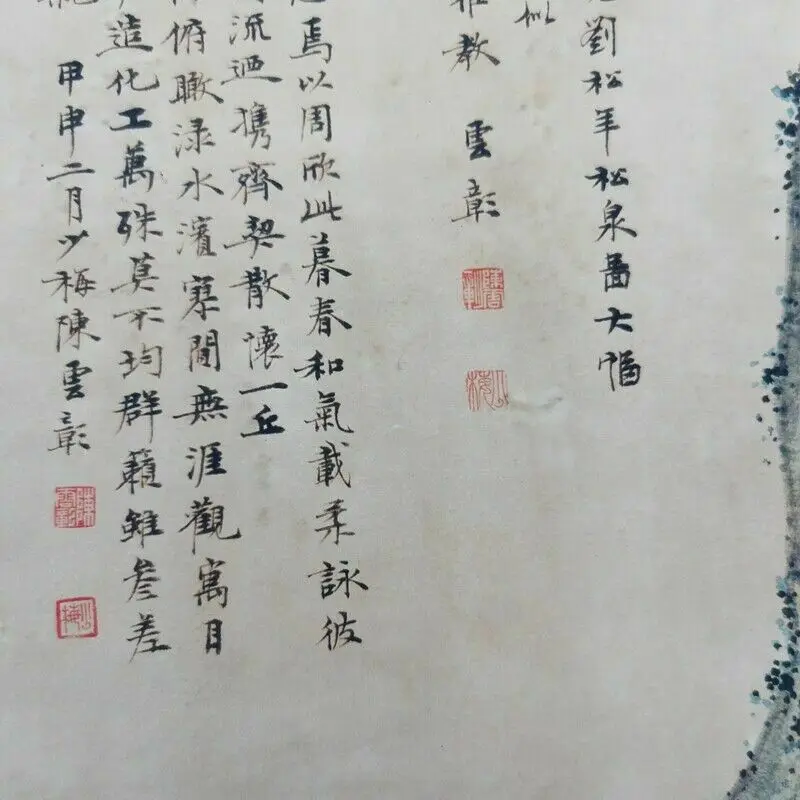 劉松年松泉啚大幅
似
雅教 雲彰
焉以周欣此暮春和氣載柔詠彼
流迴携齊契散懷一丘
俯瞰渌水濱寥閒無涯觀寓目
造化工萬殊莫不均群籟雖參差
甲申二月少梅陳雲彰
少梅